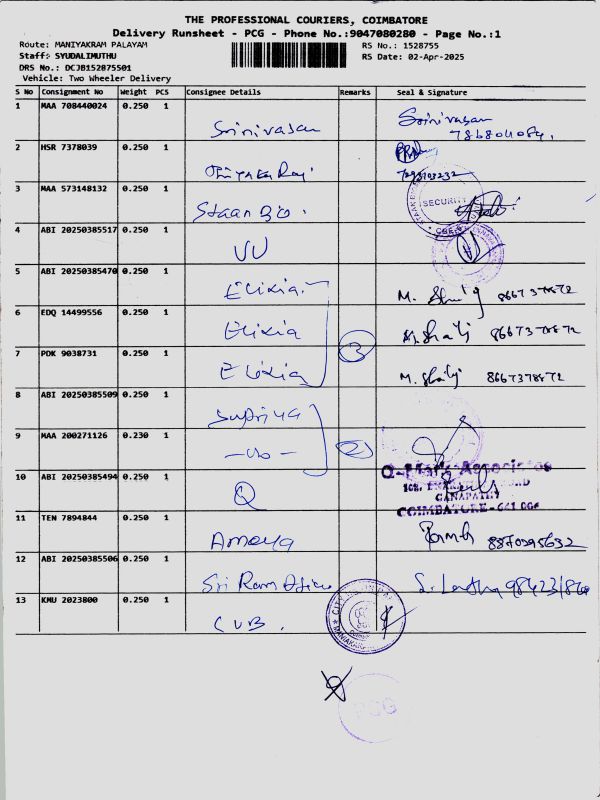 THE PROFESSIONAL COURIERS, COIMBATORE
Delivery Runsheet - PCG - Phone No.:9047080280 - Page No.:1
Route: MANIYAKRAM PALAYAM
RS No.: 1528755
Staff: SYUDALIMUTHU
RS Date: 02-Apr-2025
DRS No.: DCJB152875501
Vehicle: Two Wheeler Delivery
S No Consignment No Weight PCS Consignee Details Remarks Seal & Signature
1 MAA 708440024 0.250 1 Srinivasan Srinivasan
2 HSR 7378039 0.250 1
3 MAA 573148132 0.250 1 Staan Bio. SECURITY
4 ABI 20250385517 0.250 1 VU
5 ABI 20250385470 0.250 1 Elixia M. 8667378872
6 EDQ 14499556 0.250 1 Elixia 8667378872
7 PDK 9038731 0.250 1 Elixia 3 M. 8667378872
8 ABI 20250385509 0.250 1 Supriya
9 MAA 200271126 0.230 1 2
Associates
10 ABI 20250385494 0.250 1 Q
GANAPATHY
COIMBATORE - 641 006
11 TEN 7894844 0.250 1 Amaya 8870295632
12 ABI 20250385506 0.250 1 Sri Ram Office
13 KMU 2023800 0.250 1 CUB.
PCG